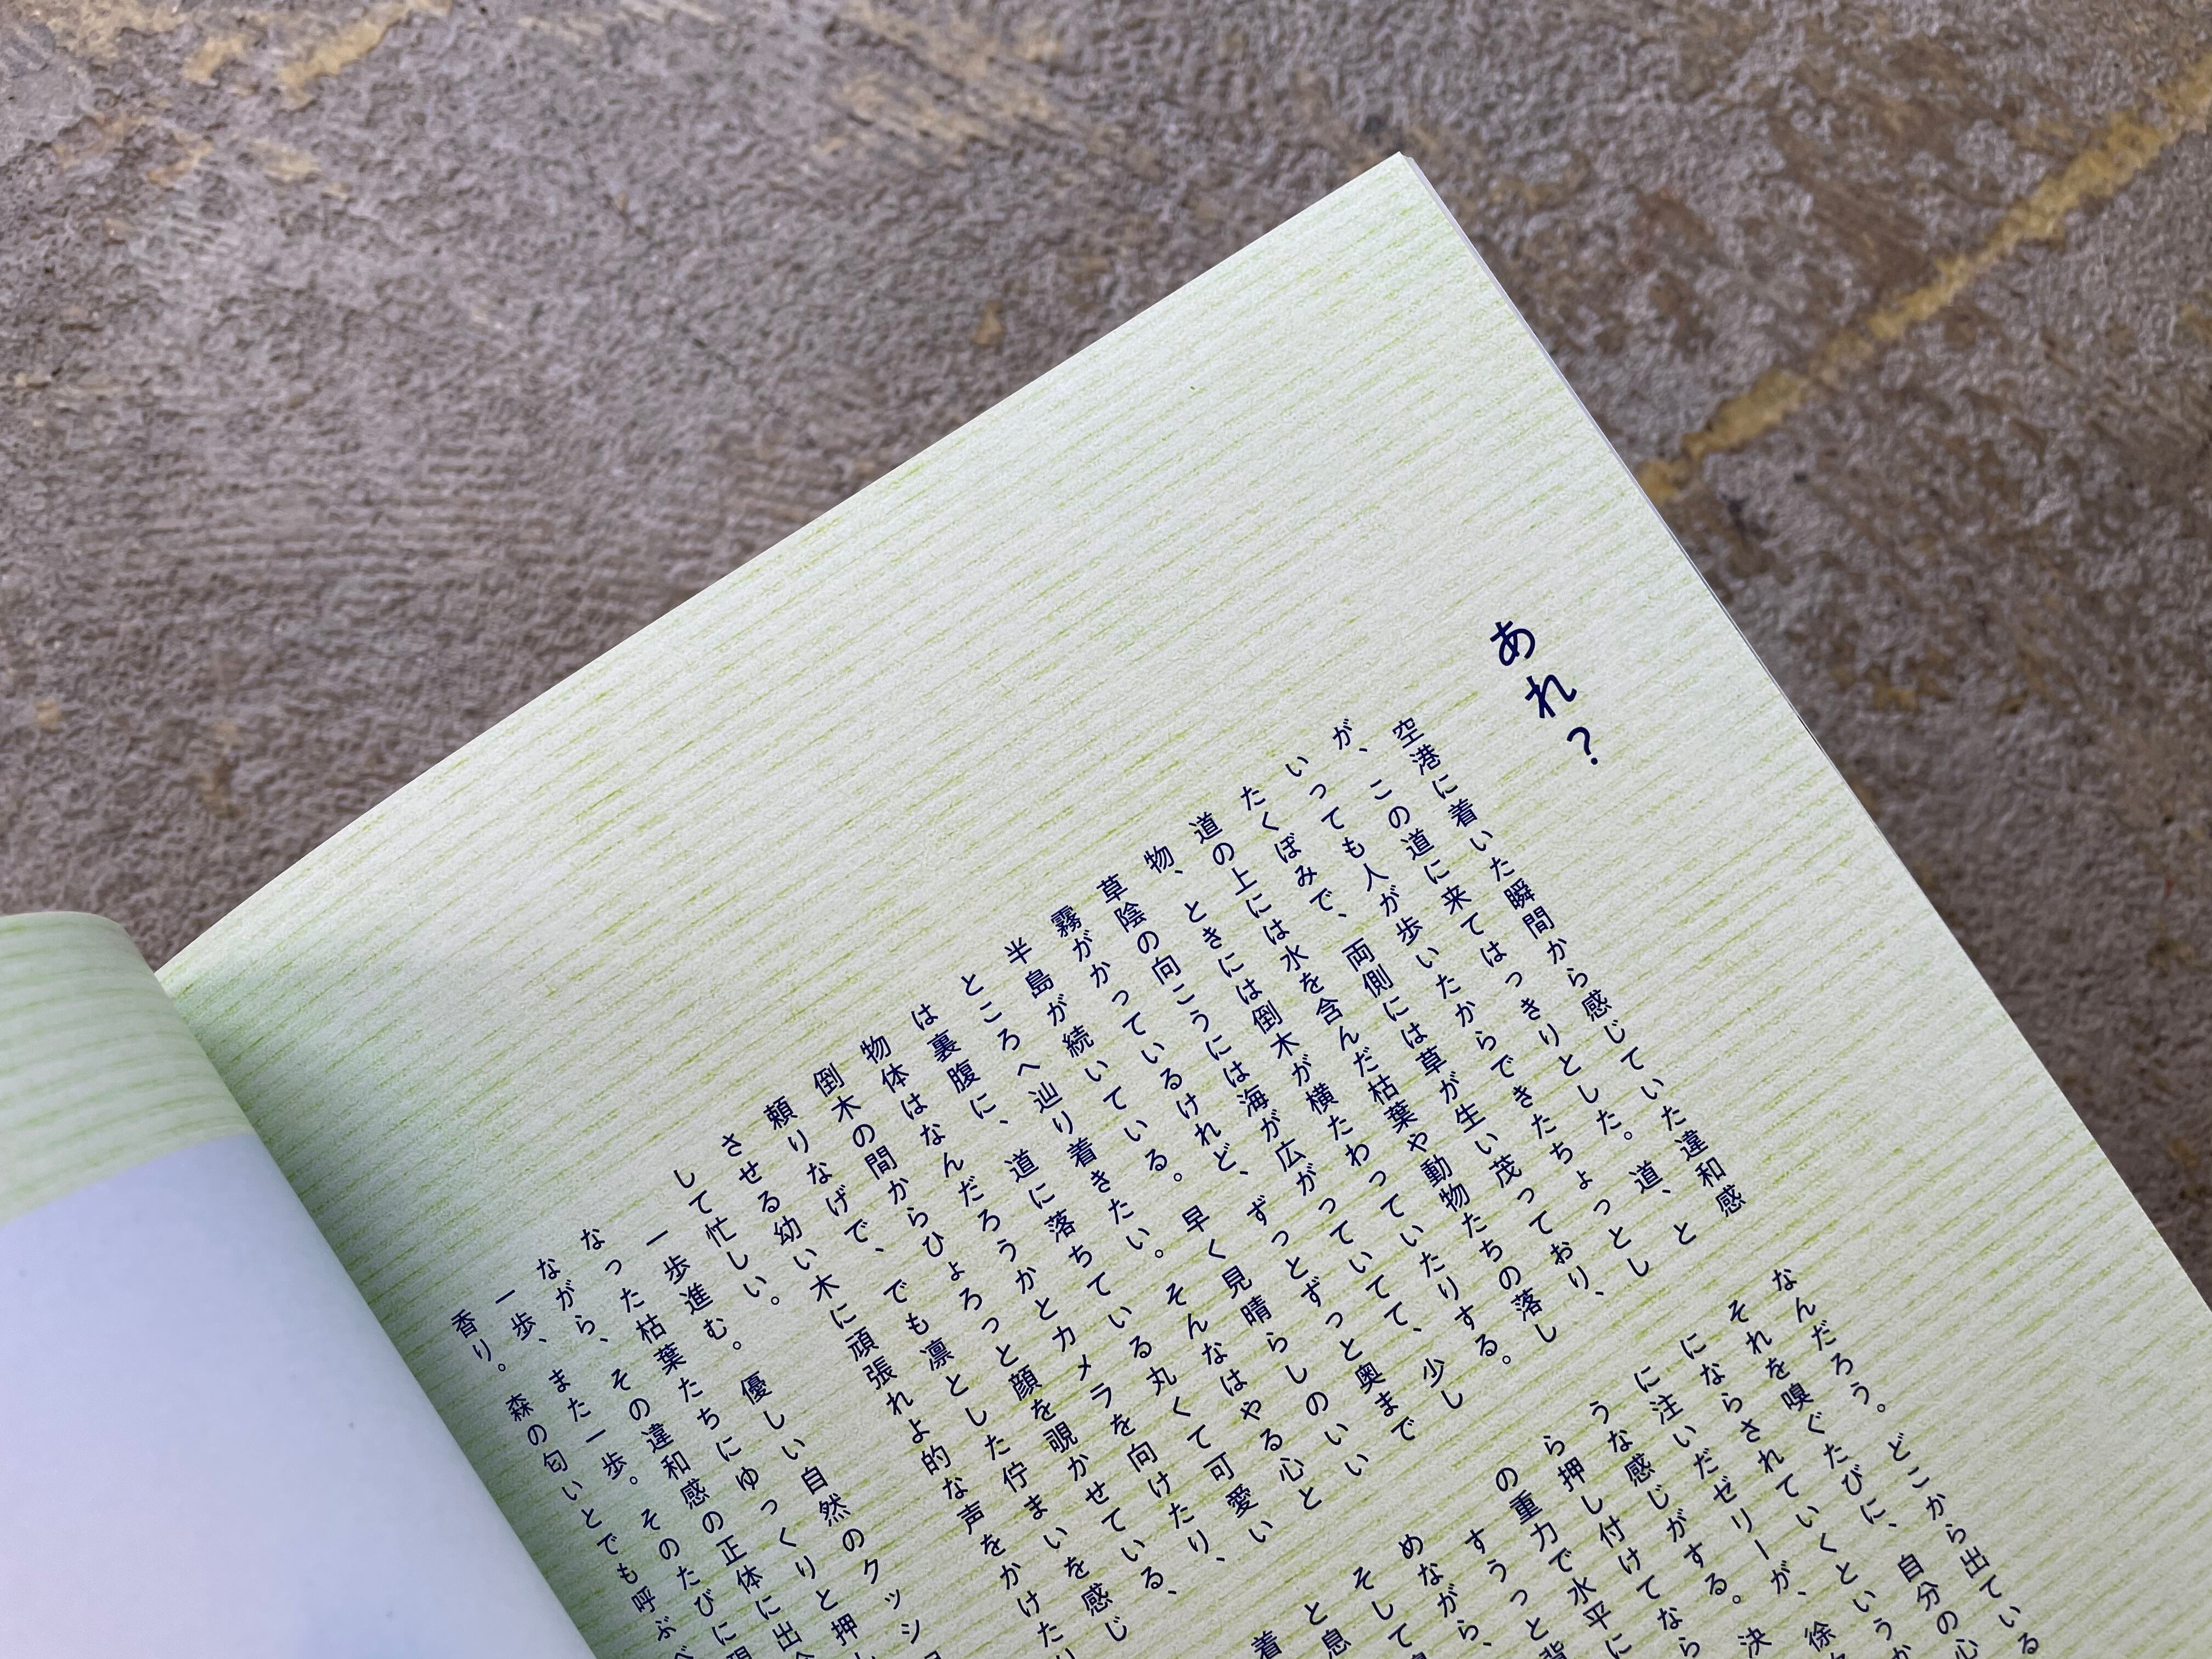 あれ?
空港に着いた瞬間から感じていた違和感
が、この道に来てはっきりとした。道、と
いっても人が歩いたからできたちょっとし
たくぼみで、両側には草が生い茂っており、
道の上には水を含んだ枯葉や動物たちの落し
物、ときには倒木が横たわっていたりする。
草陰の向こうには海が広がっていてて、少し
霧がかっているけれど、ずっとずっと奥まで
半島が続いている。早く見晴らしのいい
ところへ辿り着きたい。そんなはやる心と
は裏腹に、道に落ちている丸くて可愛い
物体はなんだろうかとカメラを向けたり、
倒木の間からひょろっと顔を覗かせている、
頼りなげで、でも凛とした佇まいを感じ
させる幼い木に頑張れよ的な声をかけたり
して忙しい。
一歩進む。優しい自然のクッシ
なった枯葉たちにゆっくりと押
ながら、その違和感の正体に出
一歩、また一歩。そのたびに
香り。森の匂いとでも呼ぶ
なんだろう。どこから出ている
それを嗅ぐたびに、自分の心
にならされていくというか
に注いだゼリーが、徐
うな感じがする。決
ら押し付けてなら
の重力で水平に
すうっと
めながら、
そして
と息
着